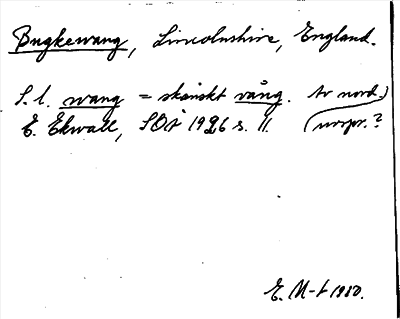 Bugkewang, Lincolnshire, England.
S. l. wang = skånskt vång. Av nord.
E. Ekwall, SOÅ 1926 s. 11. (urspr.?
E. M-t 1980.